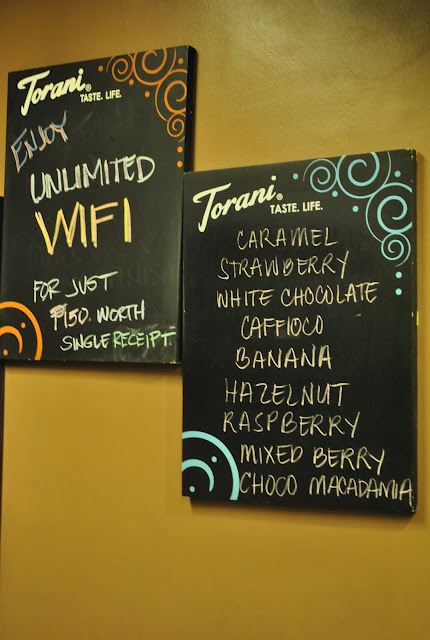 Torani®
TASTE. LIFE.
ENJOY
UNLIMITED
WIFI
FOR JUST
₱150. WORTH
SINGLE RECEIPT.
Torani®
TASTE. LIFE.
CARAMEL
STRAWBERRY
WHITE CHOCOLATE
CAFFIOCO
BANANA
HAZELNUT
RASPBERRY
MIXED BERRY
CHOCO MACADAMIA